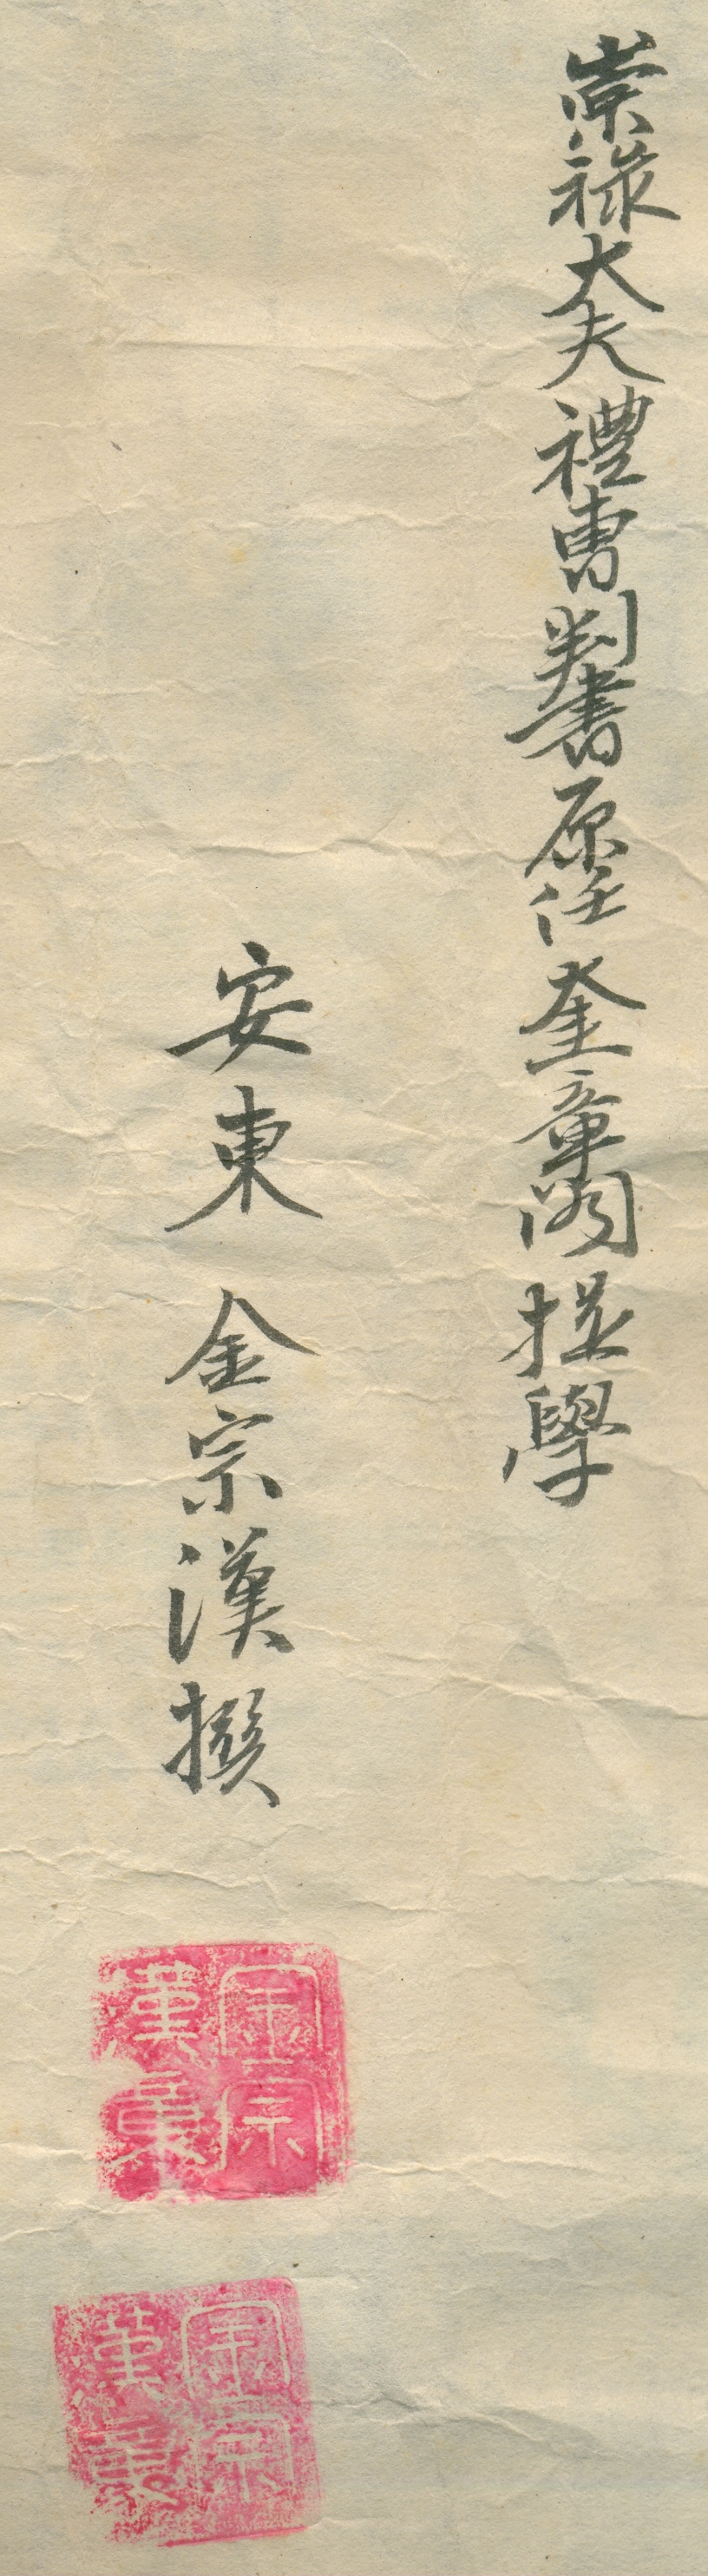 崇祿大夫禮曹判書原任奎章閣提學
安東 金宗漢撰
金宗
漢
金宗
漢